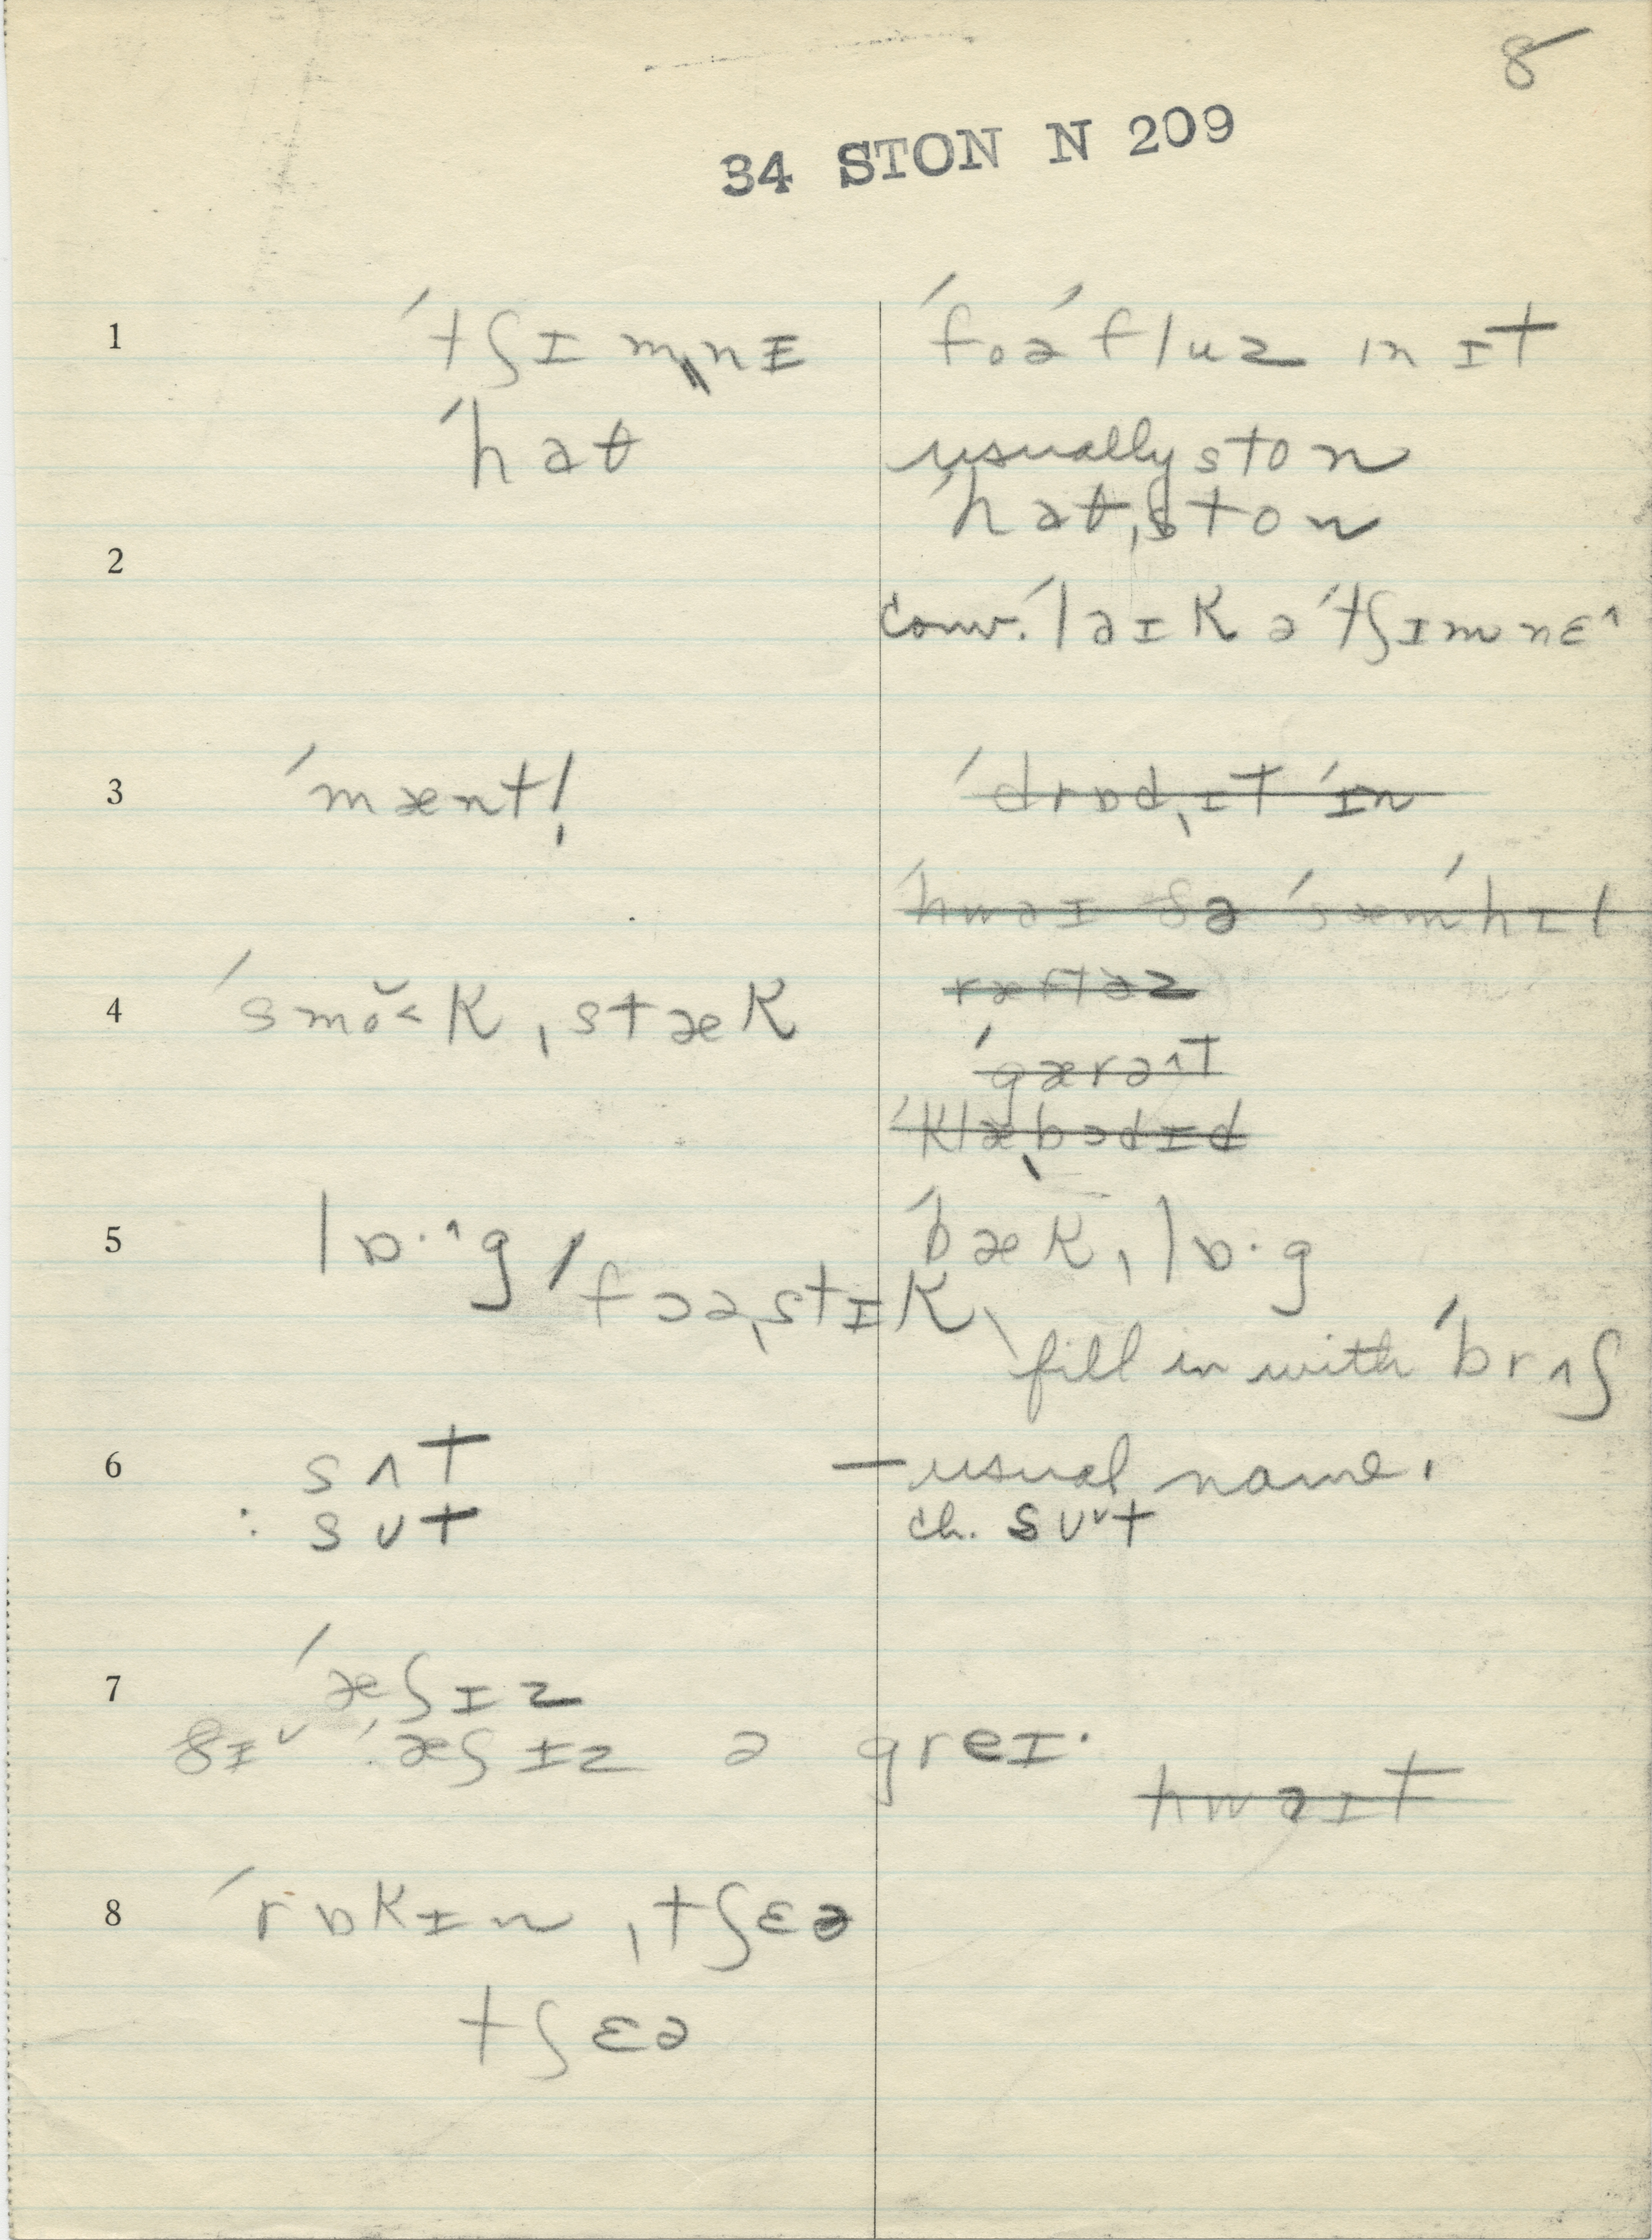 8
34 STON N 209
1 ˈtʃɪmˌnɪ ˈfoəˈfluz ɪn ɪt
ˈhaθ usually ston
ˈhaθˌston
2
conv. ˈlaɪk ə ˈtʃɪmnɛ^
3 ˈmænt! ˈdrɒdˌɪt ˈɪn
ˈhwaɪ ðə ˈsæmˈhɪl
4 ˈsmŏ˂kˌstæk ræftəz
ˈgærə^t
ˈklæˌbədɪd
5 lɒ·^g ˈbækˌlɒ·g
ˈfɔəˌstɪk fill in with ˈbrʌʃ
6 sʌt – usual name.
: sᴜt ch. sᴜ˅t
7 ˈæʃɪz
ðɪ˅ ˈæʃɪz ə greɪ· hwaɪt
8 ˈrɒkɪnˌtʃɛə
tʃɛə